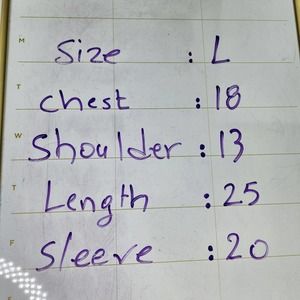 M
Size : L
T
chest : 18
W
Shoulder : 13
T
Length : 25
F
Sleeve : 20